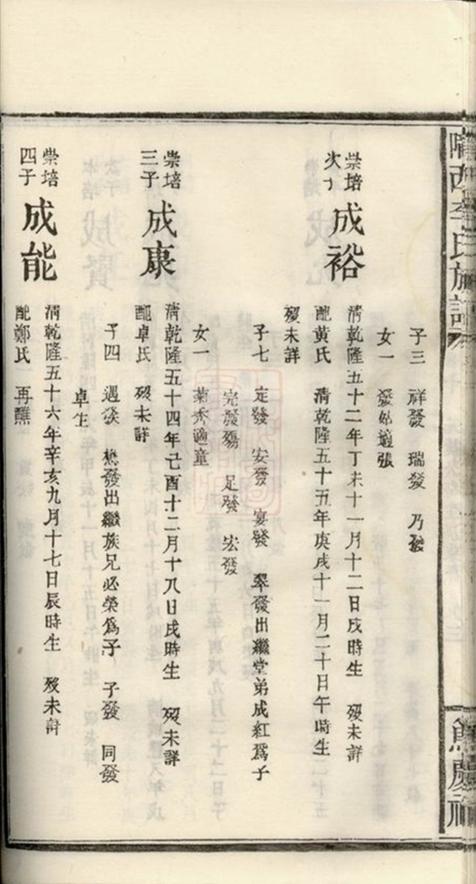 隴西李氏族譜
子三 祥發 瑞發 乃發
女一 發姑適張
崇培次子 成裕
清乾隆五十二年丁未十一月十二日戌時生 歿未詳
配黃氏 清乾隆五十五年庚戌十一月二十日午時生
歿未詳
子七 定發 安發 宴發 翠發出繼堂弟成紅爲子
完發殤 足發 宏發
女一 菊秀適童
崇培三子 成康
清乾隆五十四年己酉十二月十八日戌時生 歿未詳
配卓氏 歿未詳
子四 遇發 懋發出繼族兄必榮爲子 子發 同發
卓生
崇培四子 成能
清乾隆五十六年辛亥九月十七日辰時生 歿未詳
配鄭氏 再醮